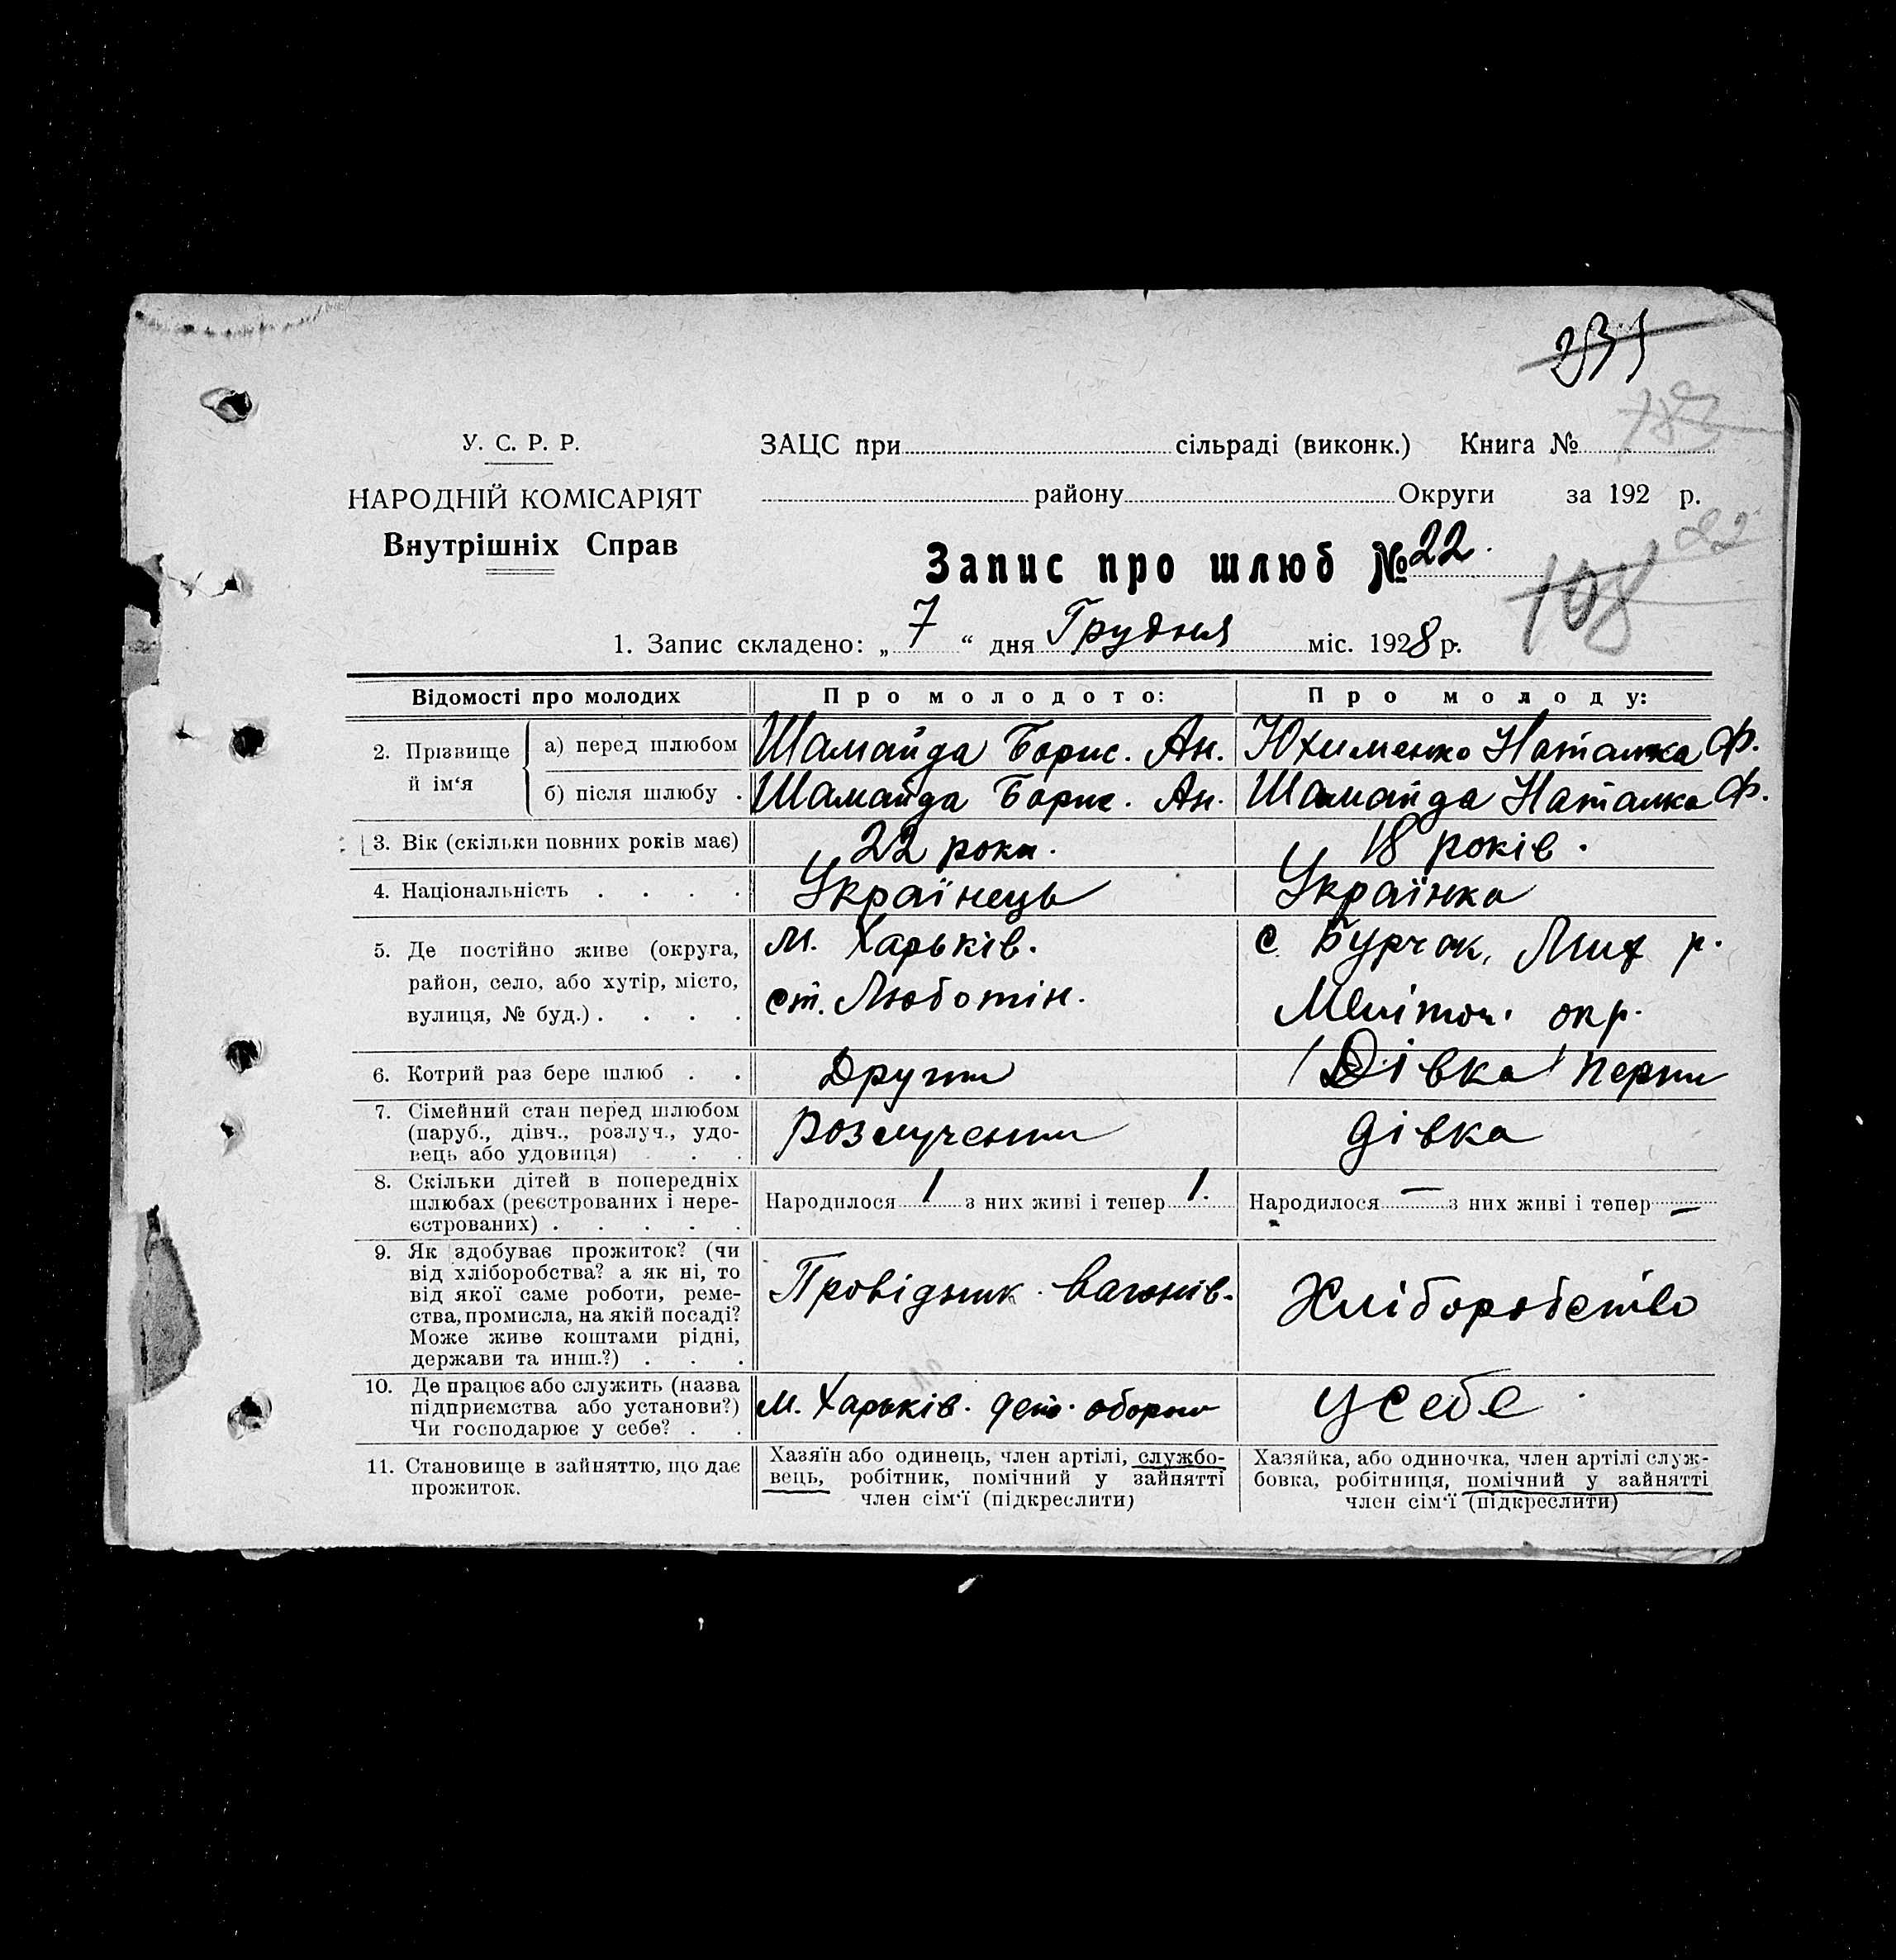 231
183
У. С. Р. Р.
ЗАЦС при сільраді (виконк.) Книга №
НАРОДНІЙ КОМІСАРІЯТ
району Округи за 192 р.
Внутрішніх Справ
22
Запис про шлюб № 22.
108
1. Запис складено: „ 7 “ дня Грудня міс. 1928 р.
Відомості про молодих
Про молодого:
Про молоду:
2. Прізвище й ім‘я
а) перед шлюбом
Шамайда Борис. Ан.
Юхименко Наталка Ф.
б) після шлюбу .
Шамайда Борис. Ан.
Шамайда Наталка Ф.
3. Вік (скільки повних років має)
22 роки.
18 років.
4. Національність . . . .
Українець
Українка
5. Де постійно живе (округа,
район, село, або хутір, місто,
вулиця, № буд.) . . . .
м. Харьків.
ст. Люботін.
с. Бурчак, р.
Меліт. окр.
6. Котрий раз бере шлюб . .
Други
/Дівка/ перши
7. Сімейний стан перед шлюбом
(паруб., дівч., розлуч., удо-
вець або удовиця) . . .
розлучений
дівка
8. Скільки дітей в попередніх
шлюбах (реєстрованих і нере-
єстрованих) . . . . .
Народилося 1 з них живі і тепер 1.
Народилося — з них живі і тепер —
9. Як здобуває прожиток? (чи
від хліборобства? а як ні, то
від якої саме роботи, реме-
ства, промисла, на якій посаді?
Може живе коштами рідні,
держави та инш.?) . . .
Провідник вагонів.
Хліборобство
10. Де працює або служить (назва
підприємства або установи?)
Чи господарює у себе? . .
м. Харьків. депо
у себе
11. Становище в зайняттю, що дає
прожиток.
Хазяїн або одинець, член артілі, службо-
вець, робітник, помічний у зайнятті
член сім‘ї (підкреслити)
Хазяйка, або одиночка, член артілі служ-
бовка, робітниця, помічний у зайнятті
член сім‘ї (підкреслити)